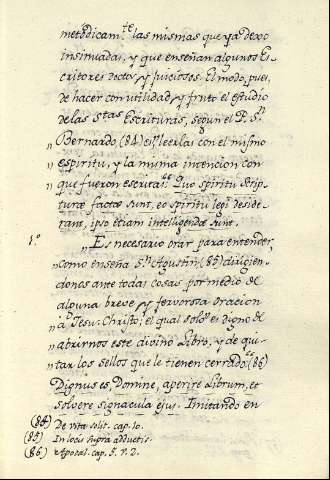 metodicam.te las mismas que ya dexo
insinuadas, y que enseñan algunos Es-
critores doctos y juiciosos. El modo, pues,
de hacer con utilidad, y fruto el estudio
de las S.tas Escrituras, segun el P. S.n
„ Bernardo (84) es leerlas con el mismo
„ espiritu, y la misma intencion con
„ que fueron escritas: Quo Spiritu Scrip-
turæ factæ sunt, eo Spiritu legi deside-
rant, ipso etiam intelligendæ sunt.
1.º „ Es necesario orar para entender,
„ como enseña S.n Agustin, (85) dirigien-
„ donos ante todas cosas por medio de
„ alguna breve y fervorosa oracion
„ à Jesu-Christo, el qual solo es digno de
„ abrirnos este divino Libro, y de qui-
„ tar los sellos que le tienen cerrado: (86)
Dignus es, Domine, aperire Librum, et
solvere signacula ejus. Imitando en
(84) De vita solit. cap. 10.
(85) In locis supra adductis.
(86) Apocal. cap. 5. v. 2.